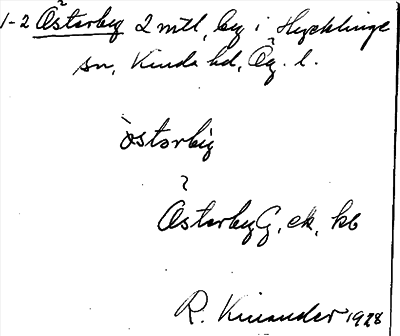 1-2 Österby 2 mtl, by i Hycklinge
sn, Kinda hd, Ög. l.
òstərbiy
Österby G, ek, kb
R. Kinander 1928